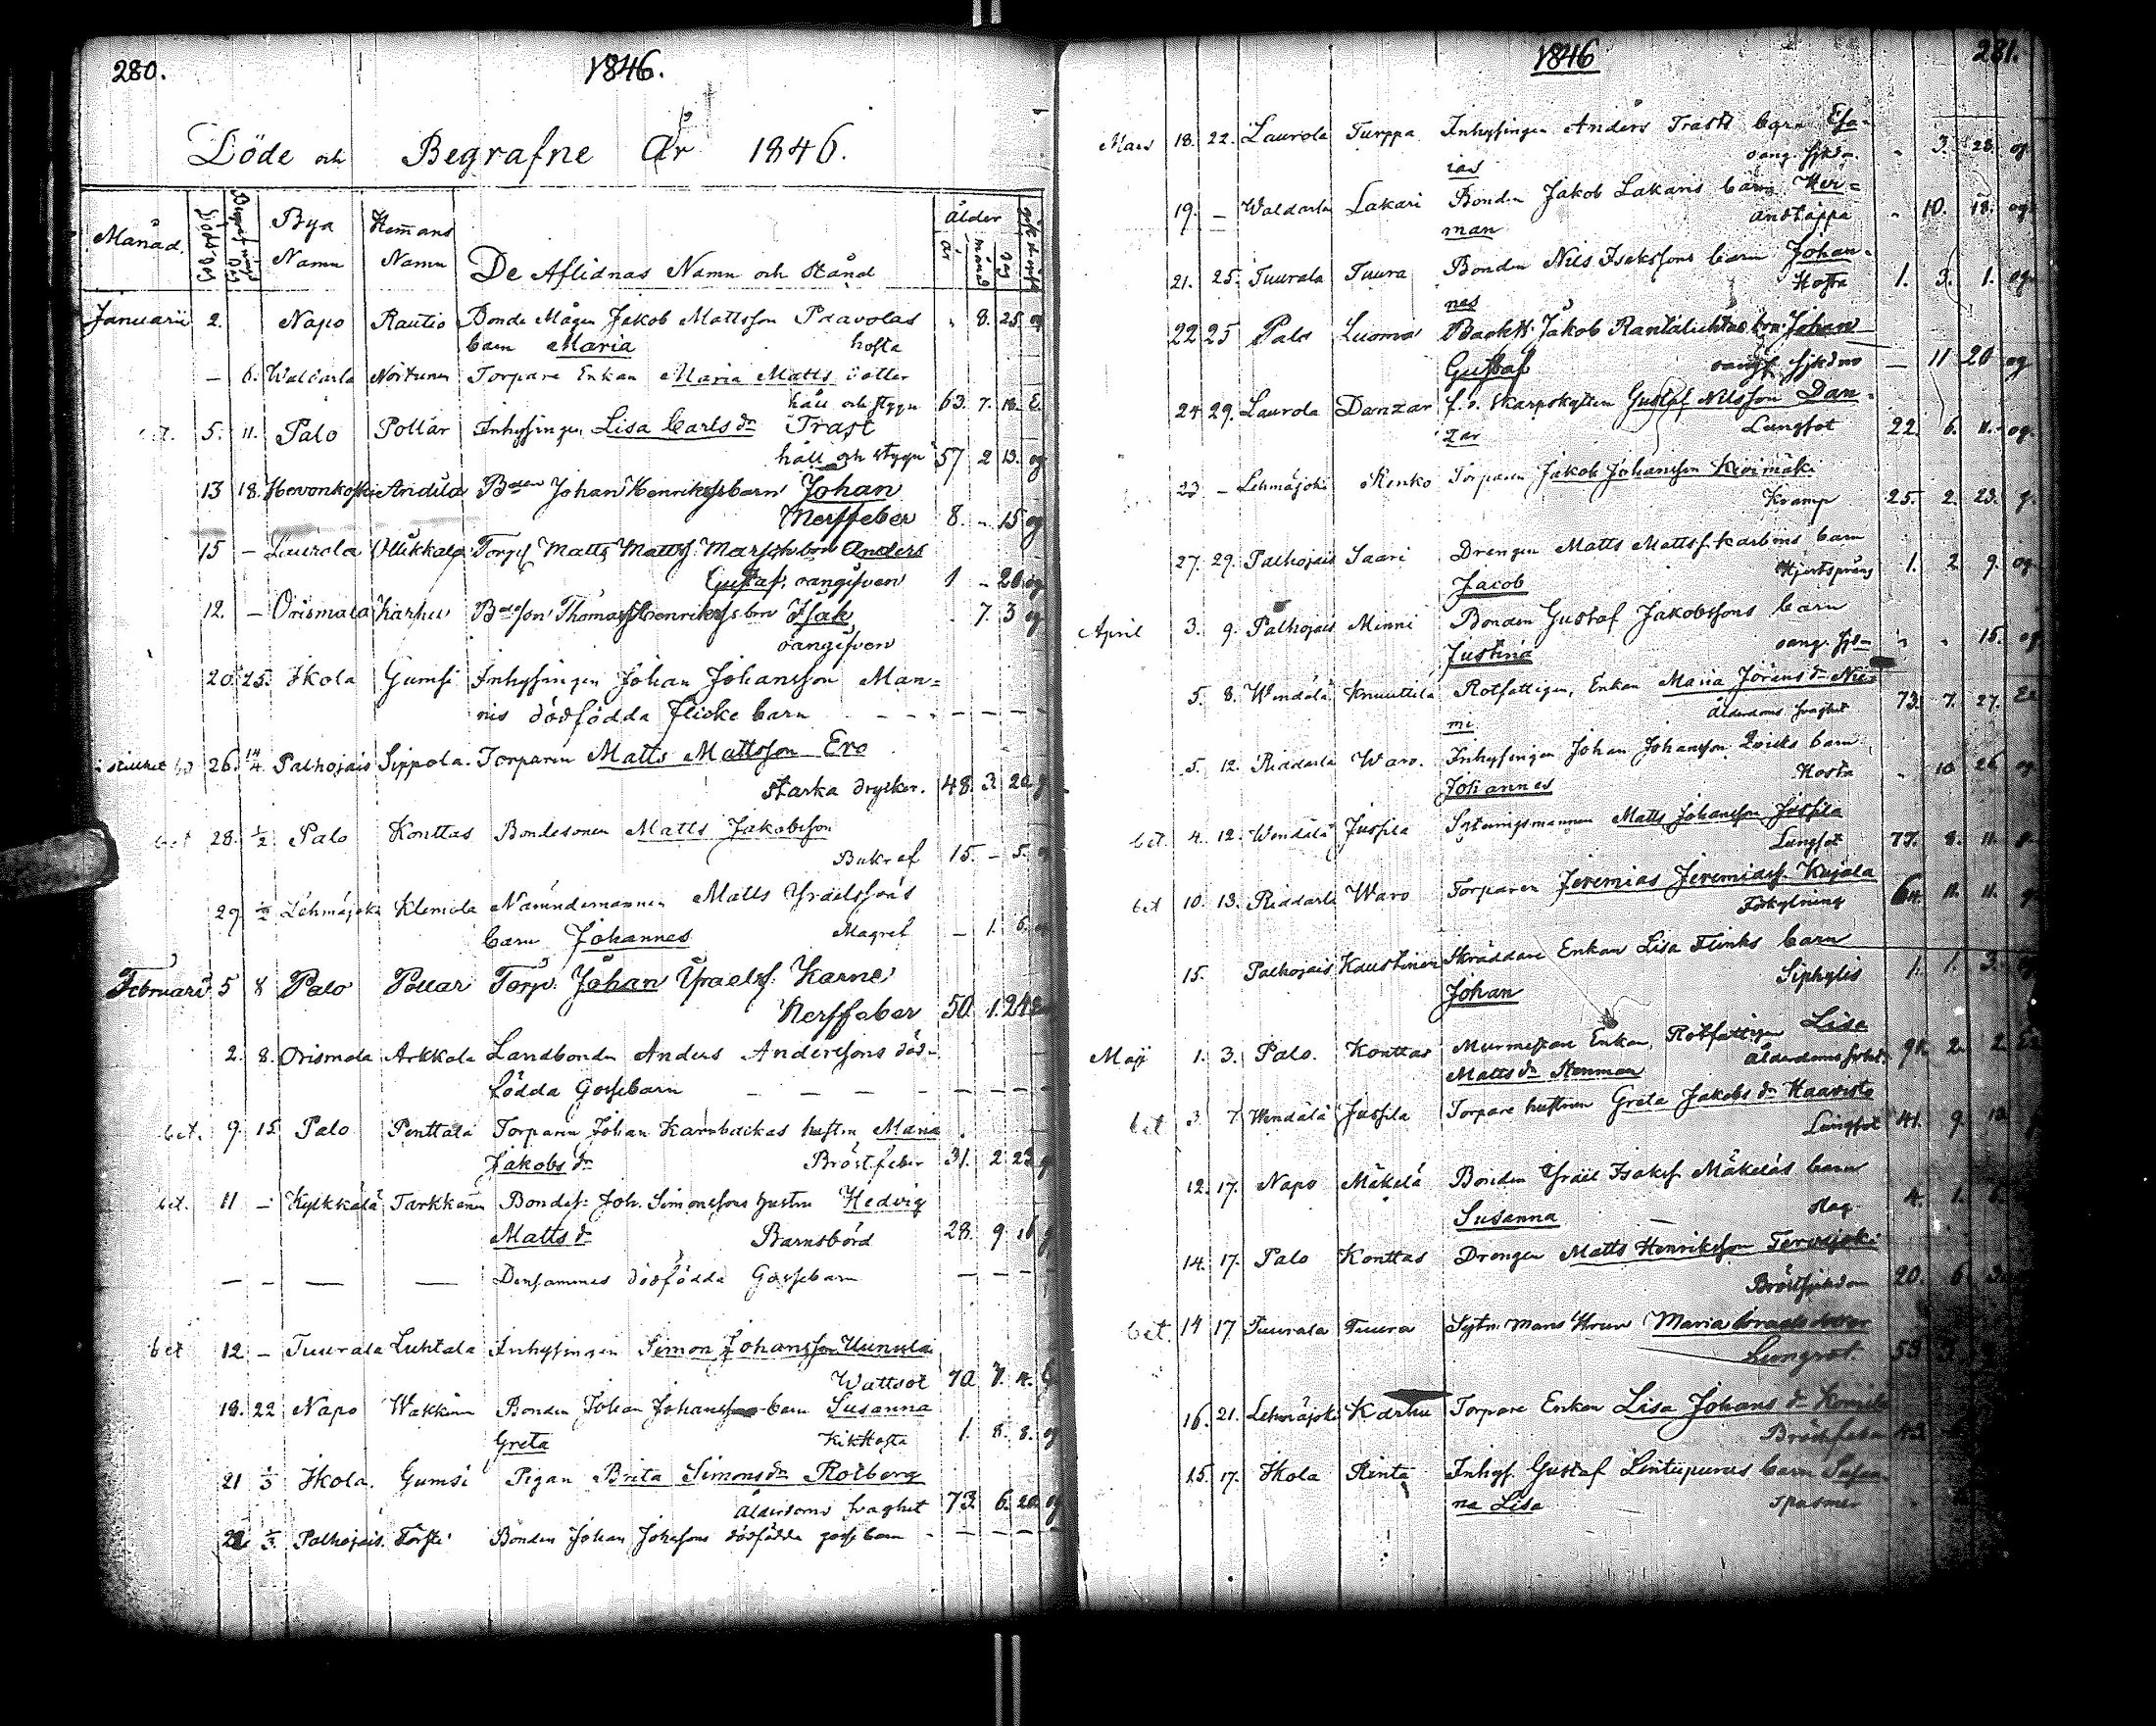 280. 1846.
Döde och Begrafne År 1846.
Månad. Döds dag Begrafnings dag Bya Namn Hemans Namn De Aflidnas Namn och stånd ålder år månad dag
Januarii 2. Napo Rautio Bonde Mågen Jakob Mattsson Paavolas " 8. 25 og
barn Maria hosta
— 6. Waldarla Noitunen Torpare Enkan Maria Matts dotter
håll och stygn 63. 7. 18. E.
bet. 5. 11. Palo Pollar Inhysingen Lisa Carls dr Trast
håll och stygn 57 2 13. og
13 18. Hevonkoski Andila Johan Henrikss barn Johan
Nerffeber 8. - 15 og
15 — Laurola Ollikkala Matts Matts Anders
Gustaf, oangifven 1 - 20 og
12. — Orismala Karhu Thomas Henrikss brn Isak
oangifven . 7. 3 og
20 25. Ikola Gumsi Inhysingen Johan Johansson Man=
nis dödfödda flicke barn - - - - - -
i stillhet 26. 14/4 Palhojais Sippola. Torparen Matts Mattsson Ero
starka drycker. 48. 3. 20 g
bet 28. 1/2 Palo Konttas Bondesonen Matts Jakobsson
Bukref 15. - 5. og
29 1/2 Lehmäjoki Klemola Nämndemannen Matts Ysraelssons
barn Johannes Magref — 1. 6. og
Februarii 5 8 Palo Pollar Torp. Johan Ysraelss. Karne
Nerffeber 50. 1. 24
2. 8. Orismala Arkkola Landbonden Anders Anderssons död-
födda Gossebarn — — — — — —
bet. 9. 15 Palo Penttala Torparen Johan Karnbackas hustru Maria
Jakobs dr Bröstfeber 31. 2 23 g
bet. 11 — Kylkkälä Tarkkanen Bondes. Joh. Simonssons hustru Hedvig
Matts dr Barnsbörd 28. 9 16 g
— — — — Densammes dödfödda Gossebarn — — — —
bet 12 — Tuurala Luhtala Inhysingen Simon Johansson Uunula
Wattsot 70 7. 4. G
18. 22 Napo Wakkuri Bonden Johan Johansson barn Susanna
Greta Kikhosta 1. 8. 8. og
21 1/3 Ikola. Gumsi Pigan Brita Simons dr Rotberg
Ålderdoms svaghet 73. 6. 20. og
22. 1/3. Palhojais. Torsti Bonden Johan Johssons dödfödda gosse barn - — — — —
1846 281.
Mars 18. 22. Laurola Turppa Inhysingen Anders Trasts barn Esa=
ias oang. sjkdm. " 3. 28. og
19. — Waldarla Lakari Bonden Jakob Lakaris barn Her=
man andtäppa " 10. 18. og
21. 25. Tuurala Tuura Bonden Nils Isakssons barn Johan=
nes Hosta 1. 3. 1. og
22 25 Palo Luoma Jakob Rantaluhtas brn Johan
Gustaf oangf. sjkdmo — 11 20 og
24 29. Laurola Danzar f.d. Skarpskytten Gustaf Nilsson Dan=
zar Lungsot 22. 6. 11. og.
23 - Lehmäjoki Renko Torparen Jakob Johansson Kivimäki
Kramp 25. 2. 23. g.
27. 29. Palhojais Saari Drengen Matts Mattss. Karboms barn
Jacob Hjertsprång 1. 2. 9. og
April 3. 9. Palhojais Minni Bonden Gustaf Jakobssons barn
Justina oang. sjd— " " 15. og
5. 8. Wendälä Knuuttila Rotfattigen, Enkan Maria Jörans dr Nie=
mi Ålderdoms svaghet 73. 7. 27. En
5. 12. Riddarla Waro. Inhysingen Johan Johansson Qvicks barn
Johannes Hosta " 10 26 og
bet. 4. 12. Wendälä Jussila Sytningsmannen Matts Johansson Jussila
Lungsot 77. 8. 11. g.
bet 10. 13. Riddarla Waro Torparen Jeremias Jeremiass. Kujala
Förkylning 64. 11. 11. g
15. Palhojais Kaustinen Skräddare Enkan Lisa Flinks barn
Johan Siphylis 1. 1. 3. og
Maji 1. 3. Palo. Konttas Murmestare Enkan, Rotfattigen Lisa
Matts dr Stenman Ålderdoms svht. 91. 2. 2. En
bet 3. 7. Wendälä Jussila Torpare hustrun Greta Jakobs dr Haavisto
Lungsot 41. 9. 12. g
12. 17. Napo Mäkelä Bonden Ysrael Isakss. Mäkeläs barn
Susanna — slag. 4. 1. 6.
14. 17. Palo Konttas Drengen Matts Henriksson Tervajoki
Bröstsjukdom 20. 6.
bet. 14 17 Tuurala Tuura Sytn. mans Hrun Maria
Lungsot. 53
16. 21. Lehmäjoki Karhu Torpare Enkan Lisa Johans dr
Bröstfeber
15. 17. Ikola Rinta Inhys. Gustaf Lintupuros barn Susan-
na Lisa spasmer